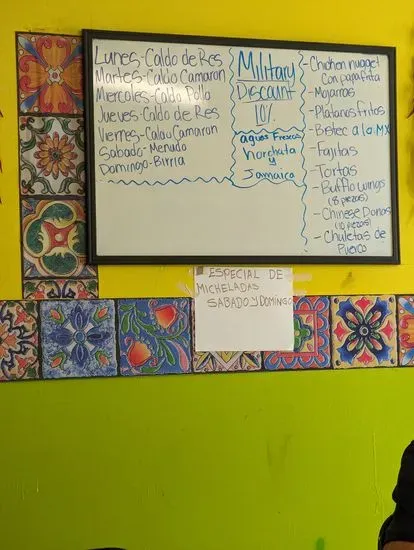 Lunes-Caldo de Res
Martes-Caldo Camaron
Miercoles-Caldo Pollo
Jueves-Caldo de Res
Viernes-Caldo Camaron
Sabado-Menudo
Domingo-Birria
Military
Discount
10%
aguas Frescas
horchata
y
Jamaica
-Chicken nugget
con papa frita
-Mojarras
-Platanos fritos
-Bistec a la MX
-Fajitas
-Tortas
-Bufflo wings
(8 piezas)
-Chinese Donas
(10 piezas)
-Chuletas de
Puerco
ESPECIAL DE
MICHELADAS
SABADO Y DOMINGO